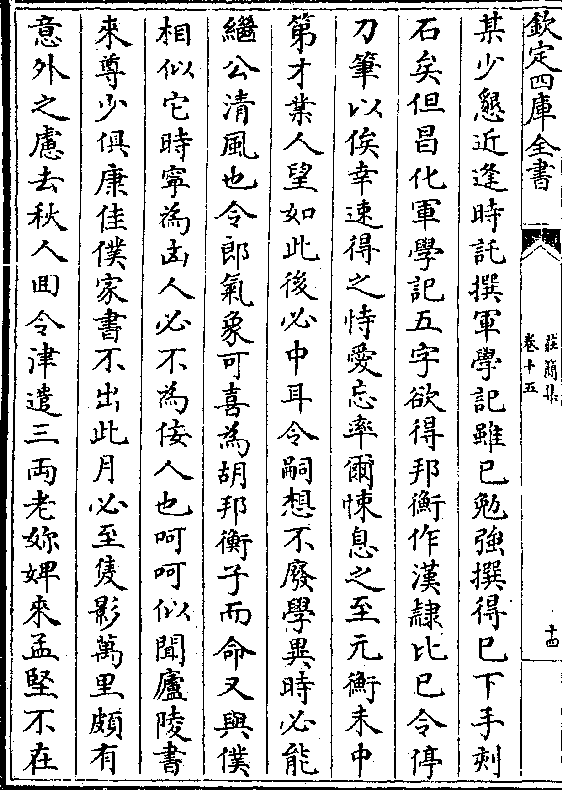 欽定四庫全書
莊簡集
卷十五
十四
某少懇近逢時託撰軍學記雖已勉強撰得已下手刻
石矣但昌化軍學記五字欲得邦衡作漢隸比已令停
刀筆以俟幸速得之恃愛忘率爾悚息之至元衡未中
第才業人望如此後必中耳令嗣想不廢學異時必能
繼公清風也令郎氣象可喜為胡邦衡子而命又與僕
相似它時寧為凶人必不為佞人也呵呵似聞廬陵書
來尊少俱康佳僕家書不出此月必至隻影萬里頗有
意外之慮去秋人回令津遣三兩老妳婢來孟堅不在